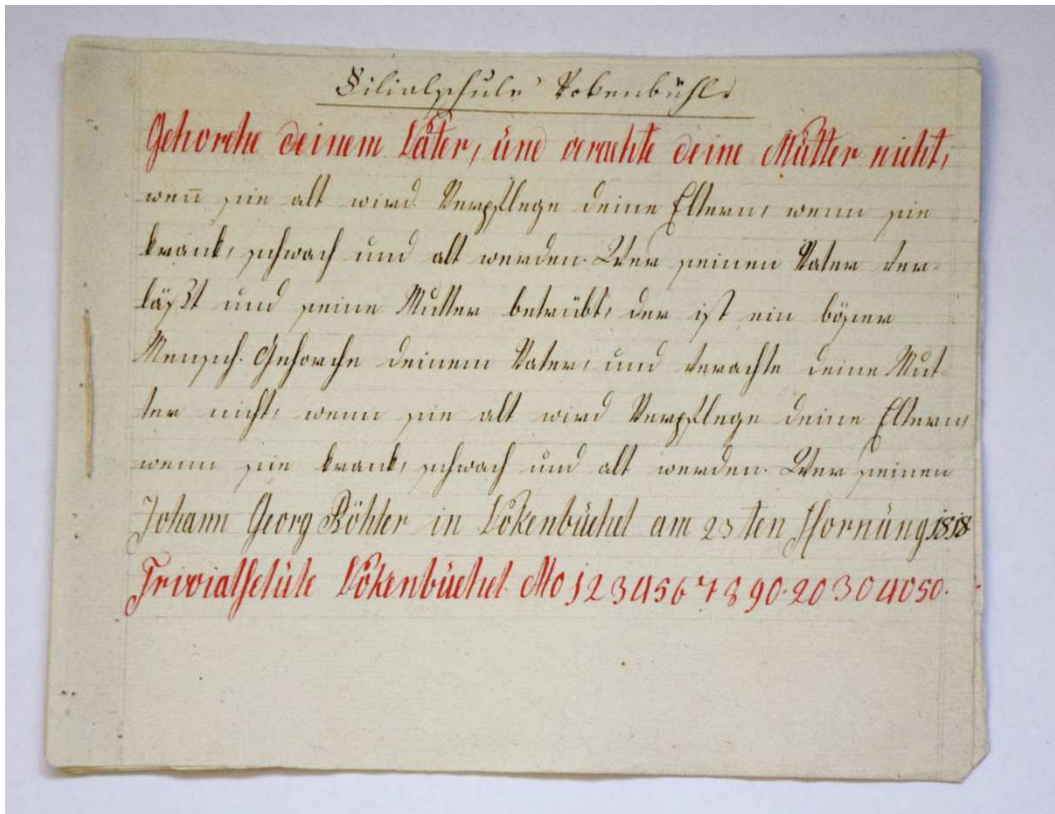 Filialschule Rokenbühl.
Gehorche deinem Vater, und verachte deine Mutter nicht,
weñ sie alt wird. Verpflege deine Eltern, wenn sie
krank, schwach und alt werden. Wer seinen Vater ver-
läßt und seine Mutter betrübt, der ist ein böser
Mensch. Gehorche deinem Vater, und verachte deine Mut-
ter nicht, wenn sie alt wird. Verpflege deine Eltern,
wenn sie krank, schwach und alt werden. Wer seinen
Johann Georg Böhler in Rökenbüchel am 23ten Hornung 1818
Trivialschule Rökenbüchel. No 1 2 3 4 5 6 7 8 90. 20 30 40 50.